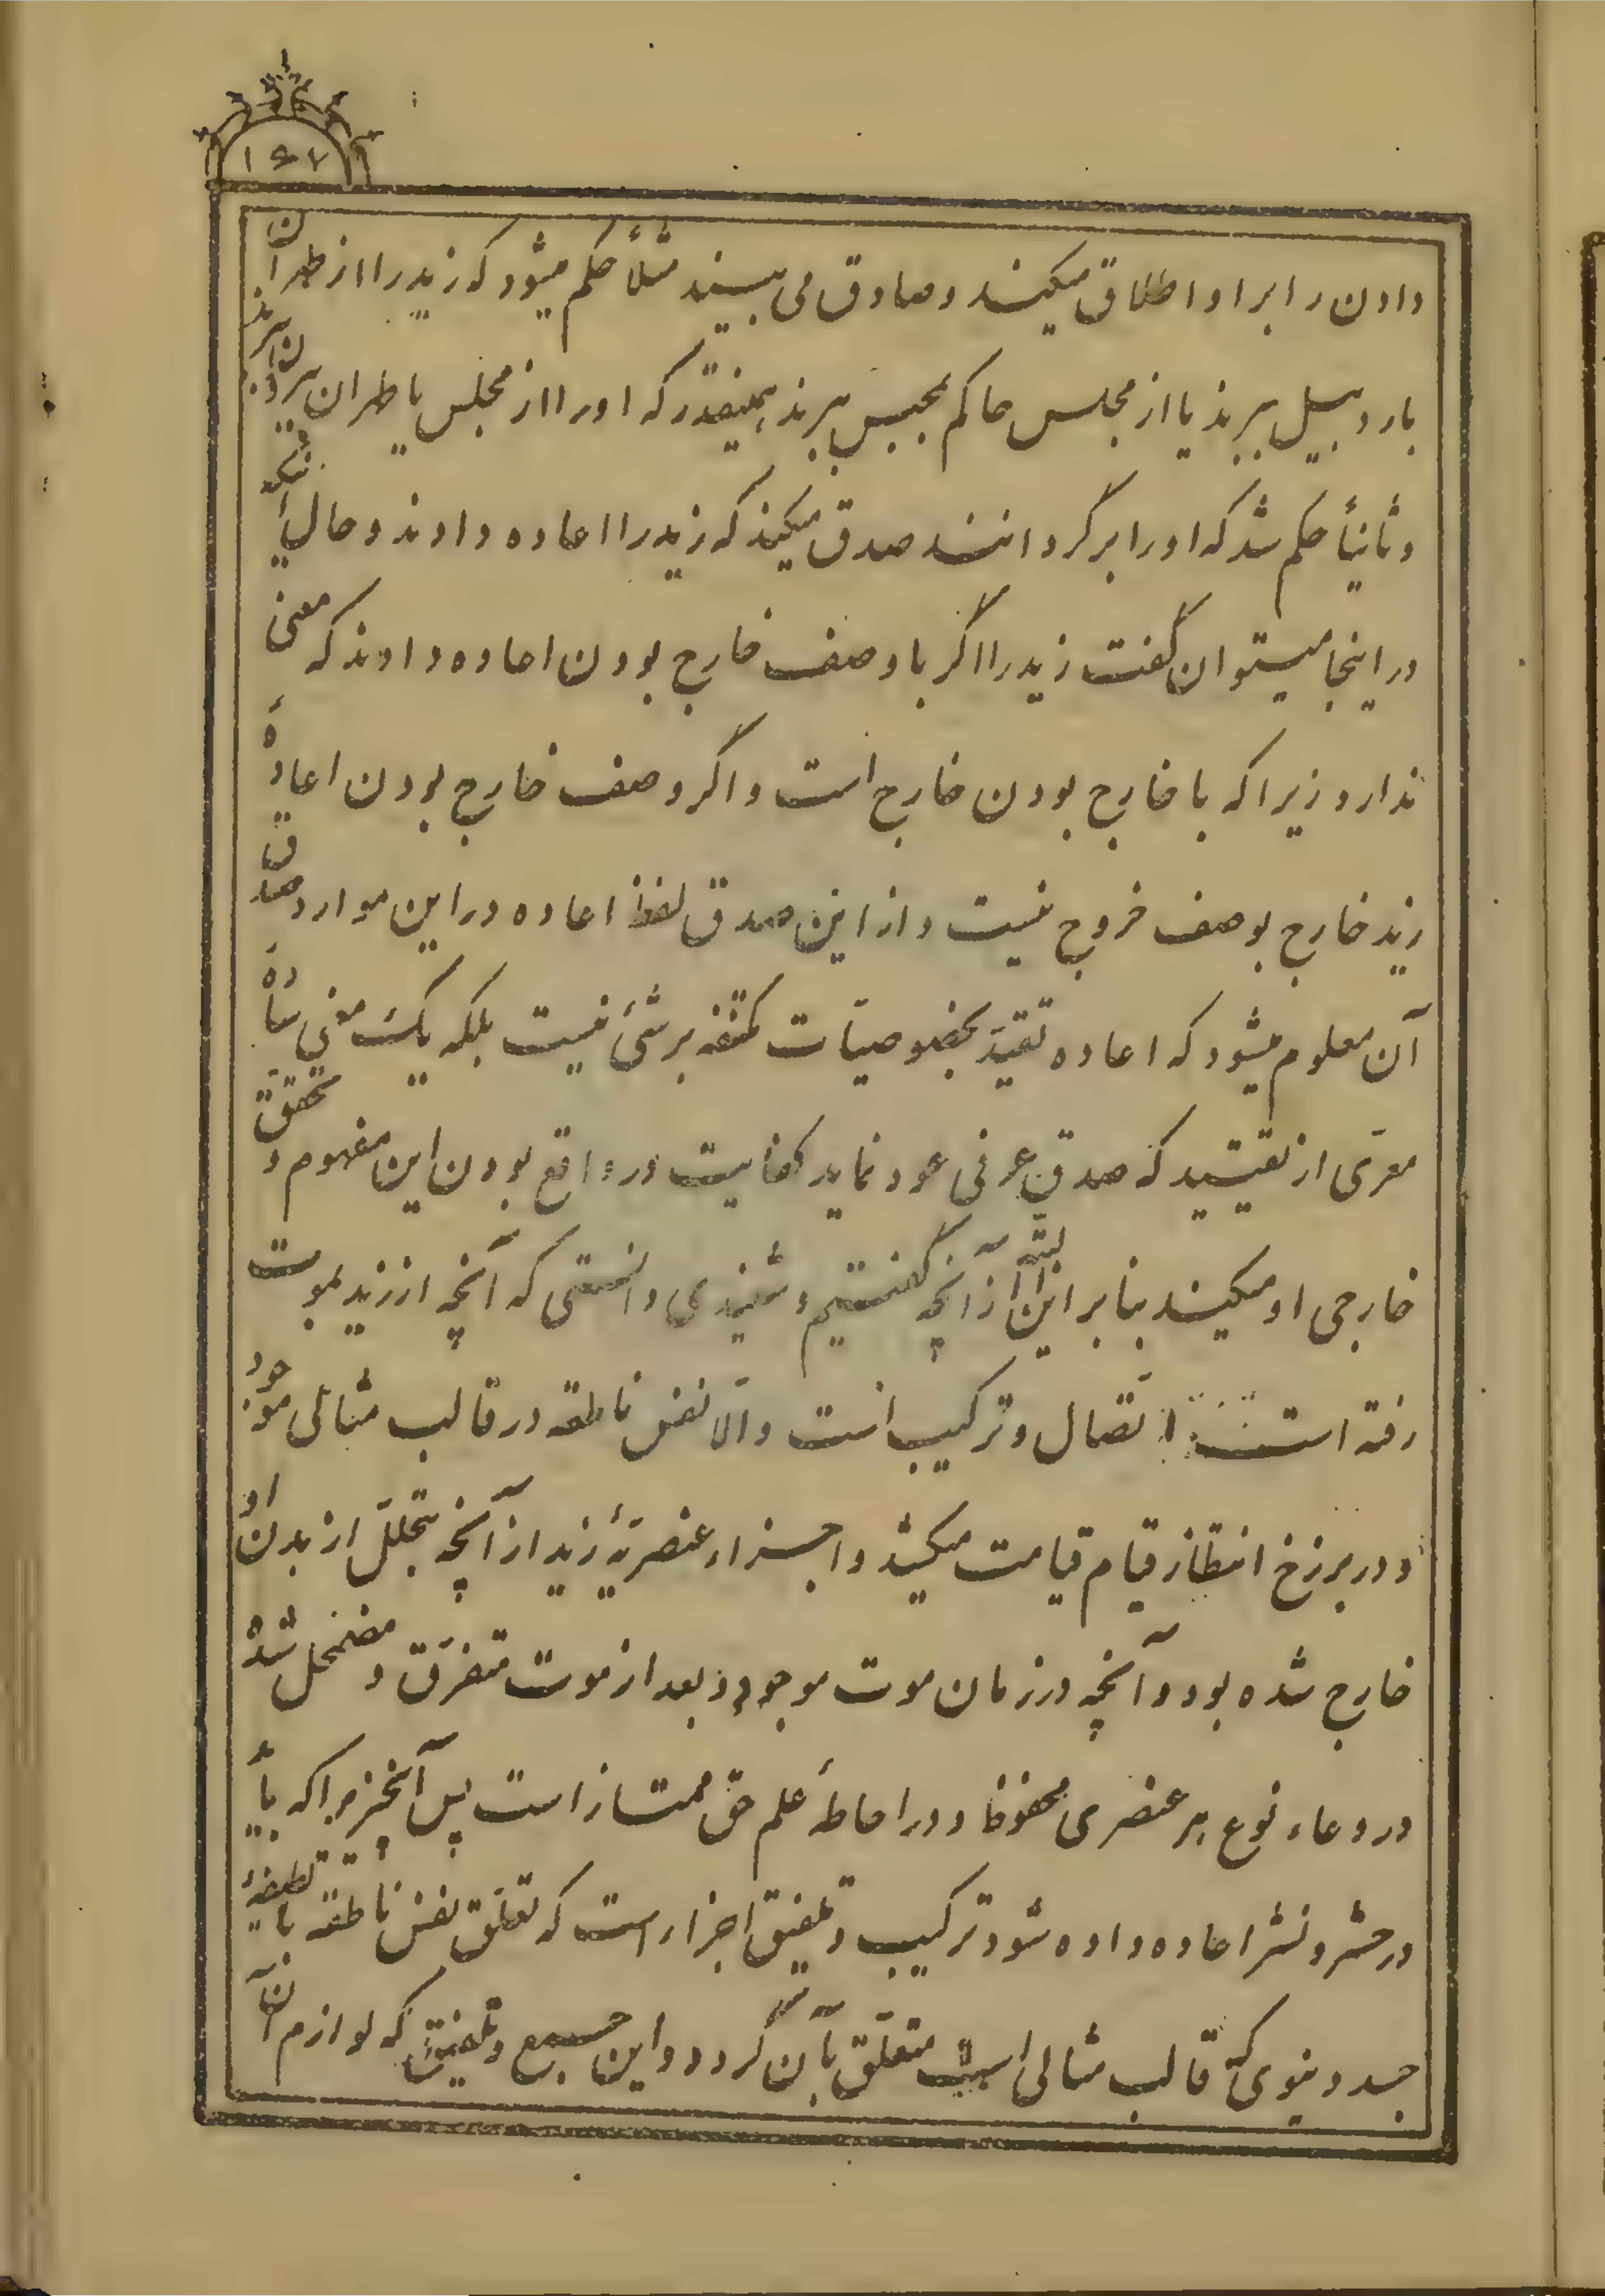 ۱۶۷
دادن را بر او اطلاق میکنند و صادق می بینند مثلاً حکم میشود که زید را از طهران
باردبیل ببرند یا از مجلس حاکم بمحبس ببرند همینقدر که او را از مجلس یا طهران بیرون بردند
و ثانیاً حکم شد که او را برگردانند صدق میکند که زید را اعاده دادند و حال آنکه
در اینجا میتوان گفت زید را اگر با وصف خارج بودن اعاده دادند که معنی
ندارد زیرا که با خارج بودن خارج است و اگر وصف خارج بودن اعاده
زید خارج بوصف خروج نیست و از این صدق لفظ اعاده در این موارد صدق
آن معلوم میشود که اعاده تقید بخصوصیّات مکتنفه بر شیٔ نیست بلکه یک معنی ساده
معرّی از تقیید که صدق عرفی عود نماید کفایت در واقع بودن این مفهوم و تحقق
خارجی او میکند بنا بر این البتّه از آنچه گفتیم و شنیدی دانستی که آنچه از زید بموت
رفته است اتّصال و ترکیب است و الّا نفس ناطقه در قالب مثالی موجود
و در برزخ انتظار قیام قیامت میکشد و اجزاء عنصریّهٔ زید از آنچه بتحلّل از بدن او
خارج شده بود و آنچه در زمان موت موجود و بعد از موت متفرّق و مضمحل شده
در وعاء نوع هر عنصری محفوظ و در احاطهٔ علم حق ممتاز است پس آنچیزیرا که باید
در حشر و نشر اعاده داده شود ترکیب و تلفیق اجزاء است که تعلّق نفس ناطقه با لطیفهٔ
جسد دنیوی که قالب مثالی است متعلّق بآن گردد و این جمع و تلفیق که لوازم آن